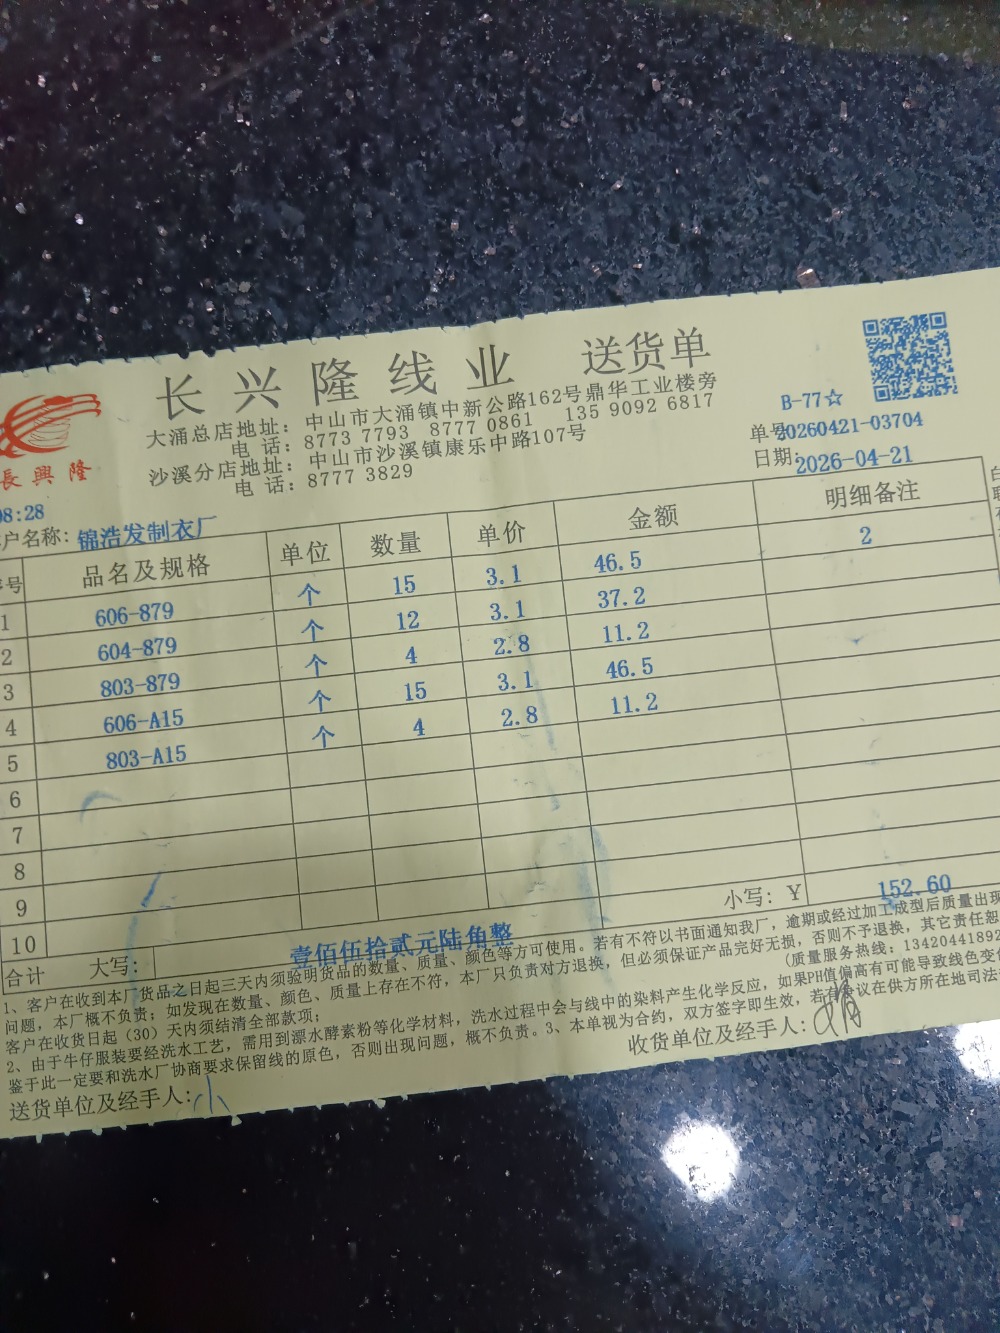 长兴隆线业 送货单
大涌总店地址：中山市大涌镇中新公路162号鼎华工业楼旁
电 话：8773 7793 8777 0861 135 9092 6817
沙溪分店地址：中山市沙溪镇康乐中路107号
电 话：8777 3829
長興隆
B-77☆
单号20260421-03704
日期：2026-04-21
08:28
户名称：锦浩发制衣厂
号 品名及规格 单位 数量 单价 金额 明细备注
1 606-879 个 15 3.1 46.5 2
2 604-879 个 12 3.1 37.2
3 803-879 个 4 2.8 11.2
4 606-A15 个 15 3.1 46.5
5 803-A15 个 4 2.8 11.2
6
7
8
9
10
合计 大写：壹佰伍拾贰元陆角整 小写：Y 152.60
1、客户在收到本厂货品之日起三天内须验明货品的数量、质量、颜色等方可使用。若有不符以书面通知我厂，逾期或经过加工成型后质量出现
问题，本厂概不负责；如发现在数量、颜色、质量上存在不符，本厂只负责对方退换，但必须保证产品完好无损，否则不予退换，其它责任恕
客户在收货日起（30）天内须结清全部款项；
（质量服务热线：1342044189
2、由于牛仔服装要经洗水工艺，需用到漂水酵素粉等化学材料，洗水过程中会与线中的染料产生化学反应，如果PH值偏高有可能导致线色变
鉴于此一定要和洗水厂协商要求保留线的原色，否则出现问题，概不负责。3、本单视为合约，双方签字即生效，若有争议在供方所在地司法
送货单位及经手人：小
收货单位及经手人：